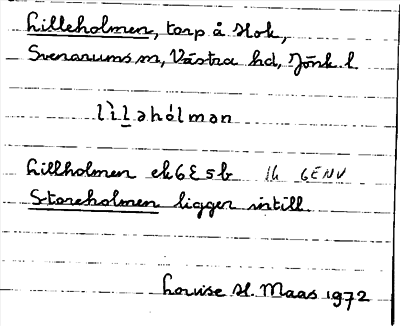 Lilleholmen, torp å Hok,
Svenarums sn, Västra hd, Jönk. l.
lìləhólmən
Lillholmen ek 6E5b 16 6ENV
Storeholmen ligger intill.
Louise H. Maas 1972